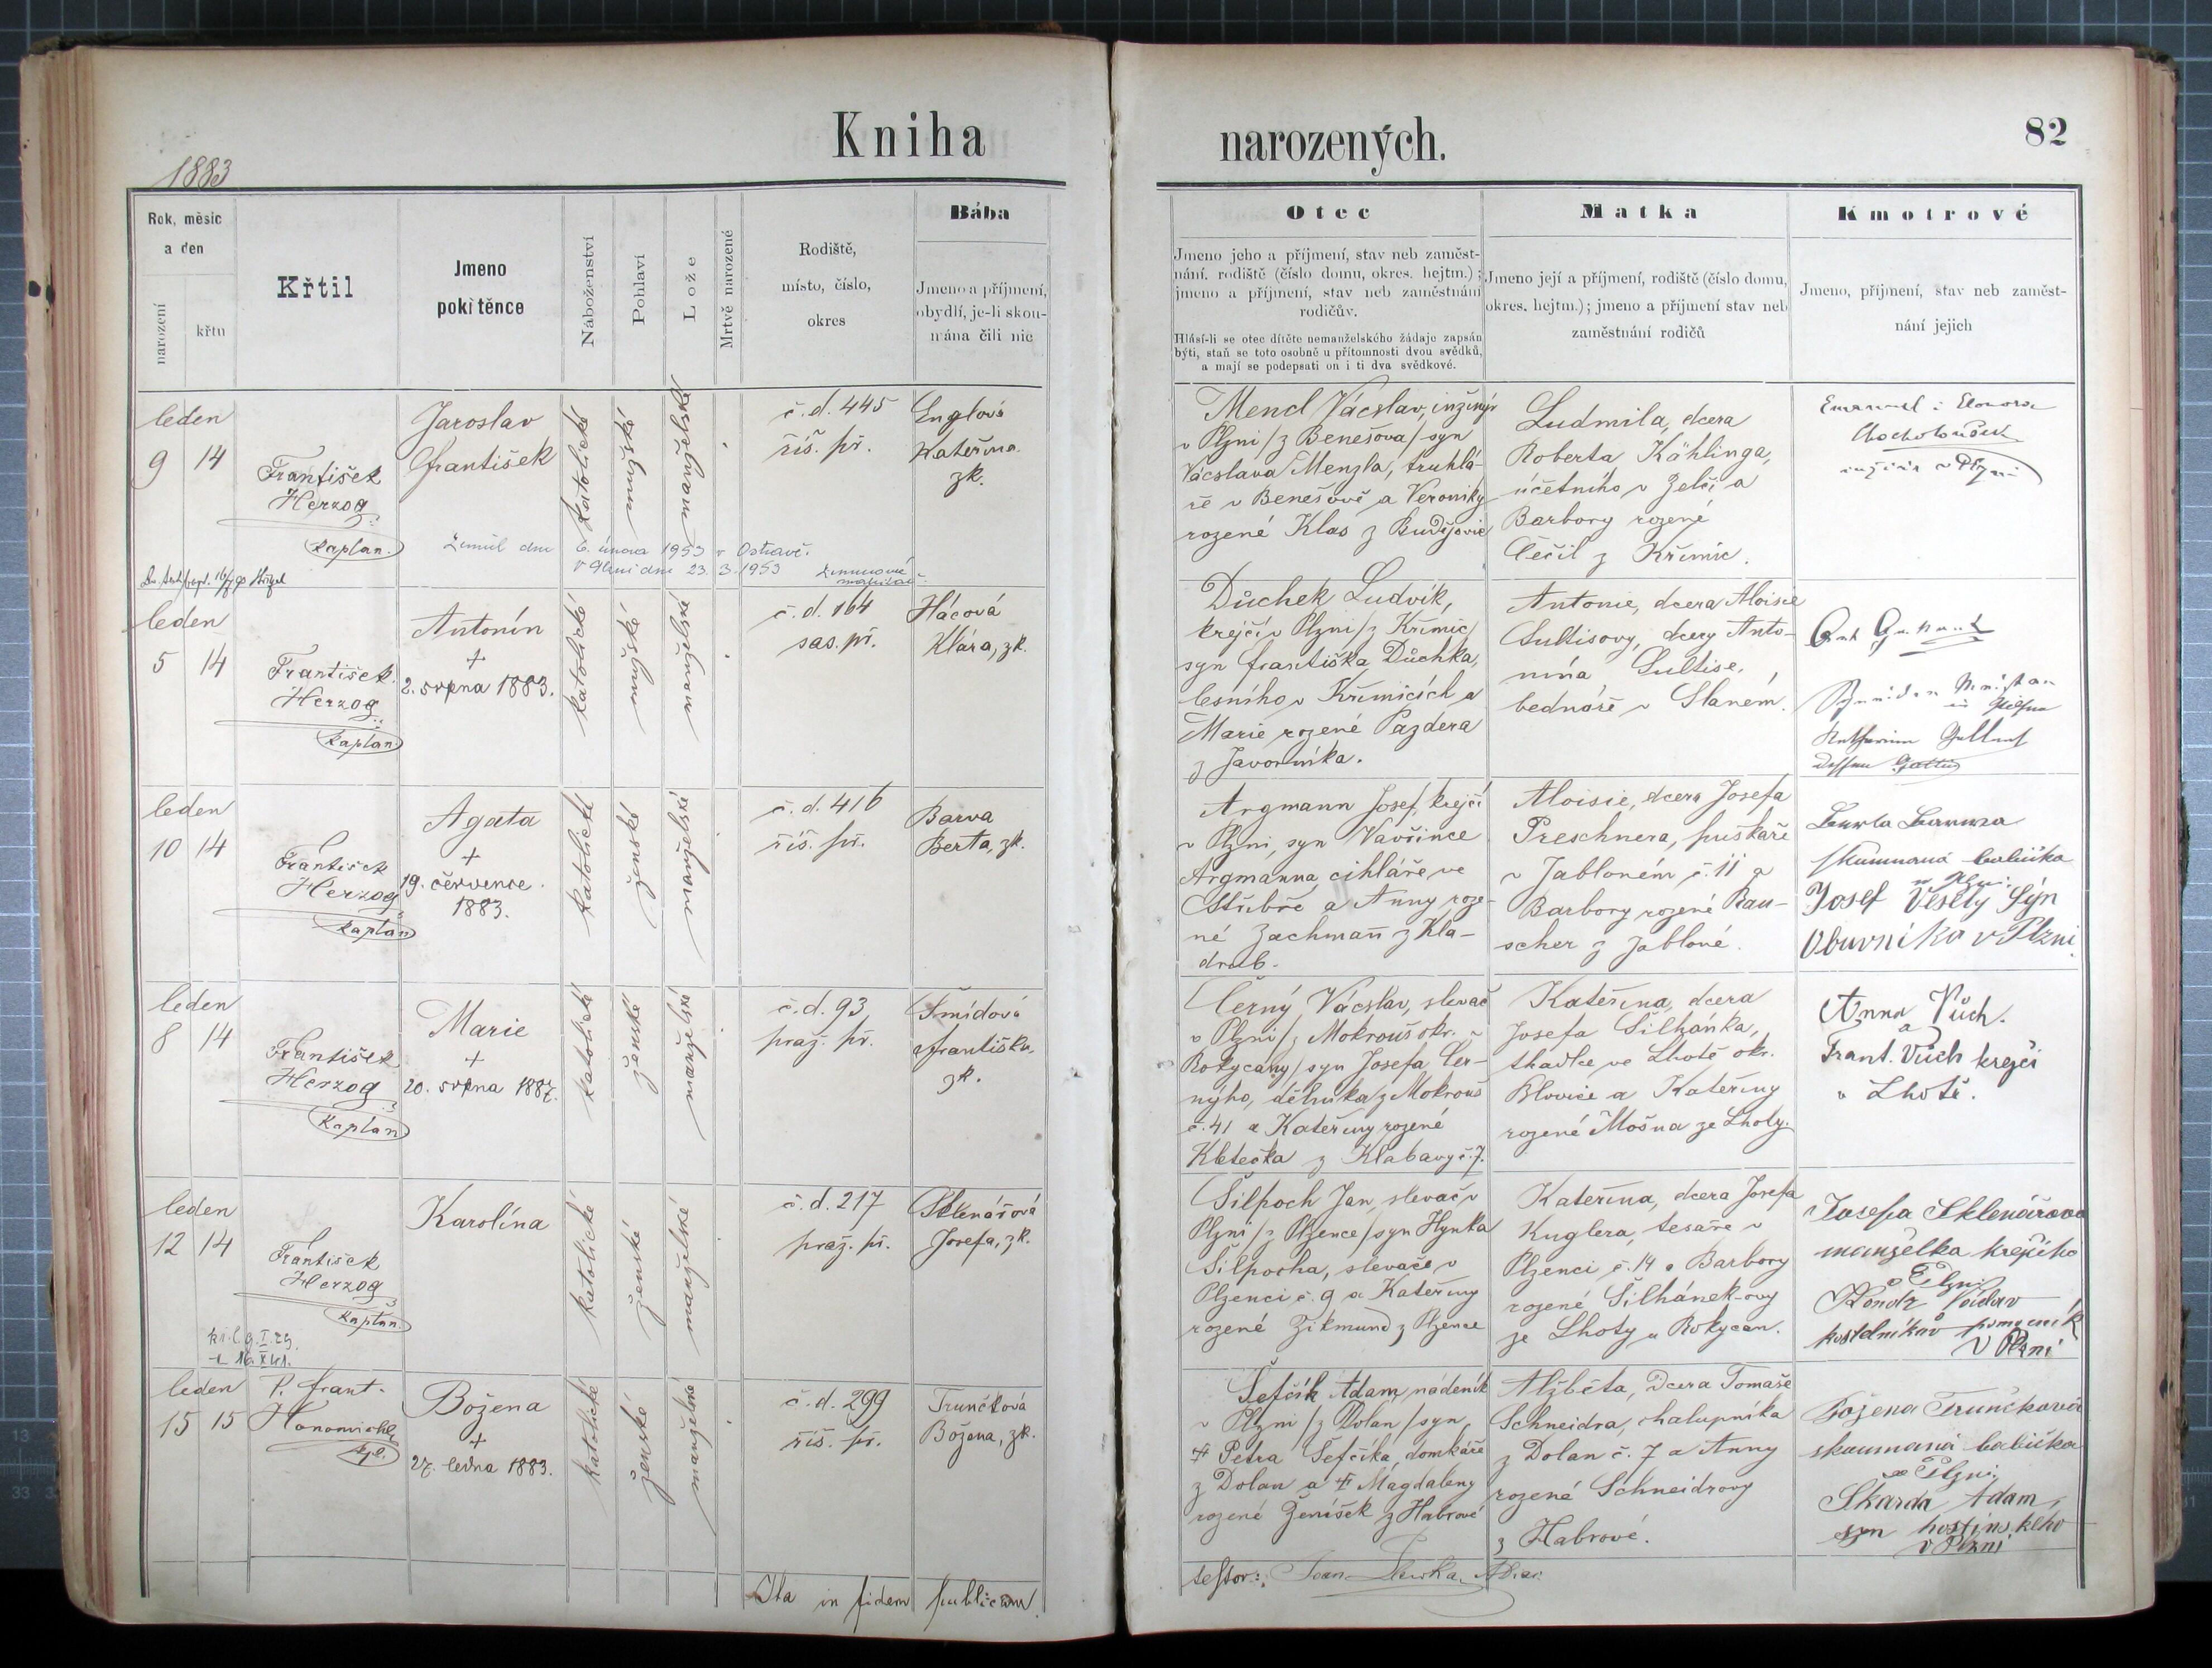 Kniha
narozených.
82
1883
Rok, měsíc
a den
narození
křtu
Křtil
Jmeno
pokřtěnce
Náboženství
Pohlaví
Lože
Mrtvě narozené
Rodiště,
místo, číslo,
okres
Bába
Jmeno a příjmení,
obydlí, je-li skou-
mána čili nic
Otec
Jmeno jeho a příjmení, stav neb zaměst-
nání, rodiště (číslo domu, okres. hejtm.);
jmeno a příjmení, stav neb zaměstnání
rodičův.
Hlásí-li se otec dítěte nemanželského žádaje zapsán
býti, staň se toto osobně u přítomnosti dvou svědků,
a mají se podepsati on i ti dva svědkové.
Matka
Jmeno její a příjmení, rodiště (číslo domu,
okres. hejtm.); jmeno a příjmení stav neb
zaměstnání rodičů
Kmotrové
Jmeno, příjmení, stav neb zaměst-
nání jejich
leden
9 14
František
Herzog
kaplan.
Jaroslav
František
Zemřel dne 6. února 1953 v Ostravě.
V Plzni dne 23. 3. 1953
katolické
mužské
manželské
č. d. 445
říš. př.
Englová
Kateřina
zk.
Mencl Václav, inženýr
v Plzni /z Benešova/ syn
Václava Menzla, truhlá-
ře v Benešově a Veroniky
rozené Klas z Budějovic
Ludmila, dcera
Roberta Kählinga,
účetního v Zelči a
Barbory rozené
Čečil z Křimic.
Emanuel i Eleonora
inženir v Plzni
leden
5 14
František
Herzog
kaplan
Antonín
+
2. srpna 1883.
katolické
mužské
manželské
č. d. 164
sas. př.
Hácová
Klára, zk.
Důchek Ludvík,
krejčí v Plzni /z Křimic/
syn Františka Důchka,
lesního v Křimicích a
Marie rozené Pazdera
z Javorníka.
Antonie, dcera Aloisie
Sultisovy, dcery Anto-
nína Sultise,
bednáře v Slaném.
leden
10 14
František
Herzog
kaplan
Agata
+
19. července
1883.
katolické
ženské
manželské
č. d. 416
říš. př.
Barva
Berta, zk.
Argmann Josef, krejčí
v Plzni, syn Vavřince
Argmanna, cihláře ve
Stříbře a Anny roze-
né Zachmañ z Kla-
drub.
Aloisie, dcera Josefa
Preschnera, puškaře
v Jabloném č. 11 a
Barbory rozené Rau-
scher z Jabloné.
Berta Barwa
skoumaná babička
v Plzni
Josef Veselý Syn
Obuvníka v Plzni.
leden
8 14
František
Herzog
kaplan
Marie
+
20. srpna 1887.
katolické
ženské
manželské
č. d. 93
praž. př.
Šmídová
Františka,
zk.
Černý Václav, slevač
v Plzni /z Mokrouš okr.
Rokycany/ syn Josefa Čer-
nýho, dělníka z Mokrouš
č. 41 a Kateřiny rozené
Kletečka z Klabavy č. 7.
Kateřina, dcera
Josefa Šilhánka,
tkadlce ve Lhotě okr.
Blovice a Kateřiny
rozené Mošna ze Lhoty.
Anna Vůch.
a
Frant. Vůch krejči
v Lhotě.
leden
12 14
František
Herzog
kaplan.
Karolína
katolické
ženské
manželské
č. d. 217
praž. př.
Sklenářová
Josefa, zk.
Šilpoch Jan, slevač v
Plzni /z Plzence/ syn Hynka
Šilpocha, slevače v
Plzenci č. 9 a Kateřiny
rozené Zikmund z Plzence
Kateřina, dcera Josefa
Kuglera, tesaře v
Plzenci č. 14 a Barbory
rozené Šilhánek-ovy
ze Lhoty u Rokycan.
Josefa Sklenářova
manželka krejčího
v Plzni
Václav
kostelníkův pomocník
V Plzni
leden
15 15
P. Frant.
Honomichl
kpl.
Božena
+
27. ledna 1883.
katolické
ženské
manželské
č. d. 299
říš. př.
Trunčková
Božena, zk.
Šefčík Adam, nádeník
v Plzni /z Dolan/ syn
Petra Šefčíka, domkáře
z Dolan a Magdaleny
rozené Ženíšek z Habrové
Alžběta, dcera Tomáše
Schneidra, chalupníka
z Dolan č. 7 a Anny
rozené Schneidrovy
z Habrové.
Božena Trunčková
skoumaná babička
v Plzni.
Skarda Adam,
syn hostinského
v Plzni
Ita in fidem publicam.
testor: